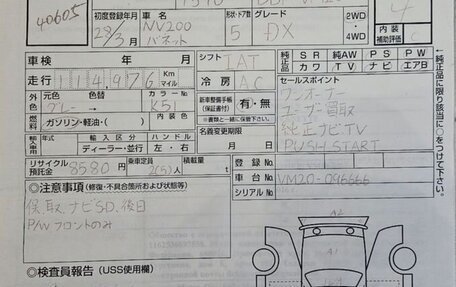 40605
初度登録年月
28/3月
車名
NV200
バネット
形状・ドア数
5
グレード
DX
2WD
4WD
4
内装
補助評価
C
車検 年 月
シフト
IAT
純正品
SR 純AW PS PW
カワ TV ナビ エアB
走行 114,976 Km マイル
冷房
AC
セールスポイント
ワンオーナー
ユーザー買取
純正ナビ、TV
PUSH START
外装色
元色 色替
グレー → 
カラーNo
K51
新車整備手帳
(保証書付)
有・無
※書類と一緒に保管して下さい。
燃料
ガソリン・軽油・( )
名義変更期限
月 日
輸入車
年式 輸入区分 ハンドル
ディーラー・並行 左・右
リサイクル
預託金
8580円
乗車定員
2(5)人
積載量
t
登録No.
車台No. VM20-096666
シリアルNo.
←純正品に限り該当に○をつけて下さい。
◎注意事項(修復・不具合箇所および状態等)
保、取、ナビSD、後日
P/W フロントのみ
A2
A1
◎検査員報告(USS使用欄)